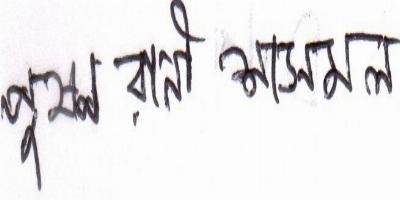 পুষ্প রানী মাসমল